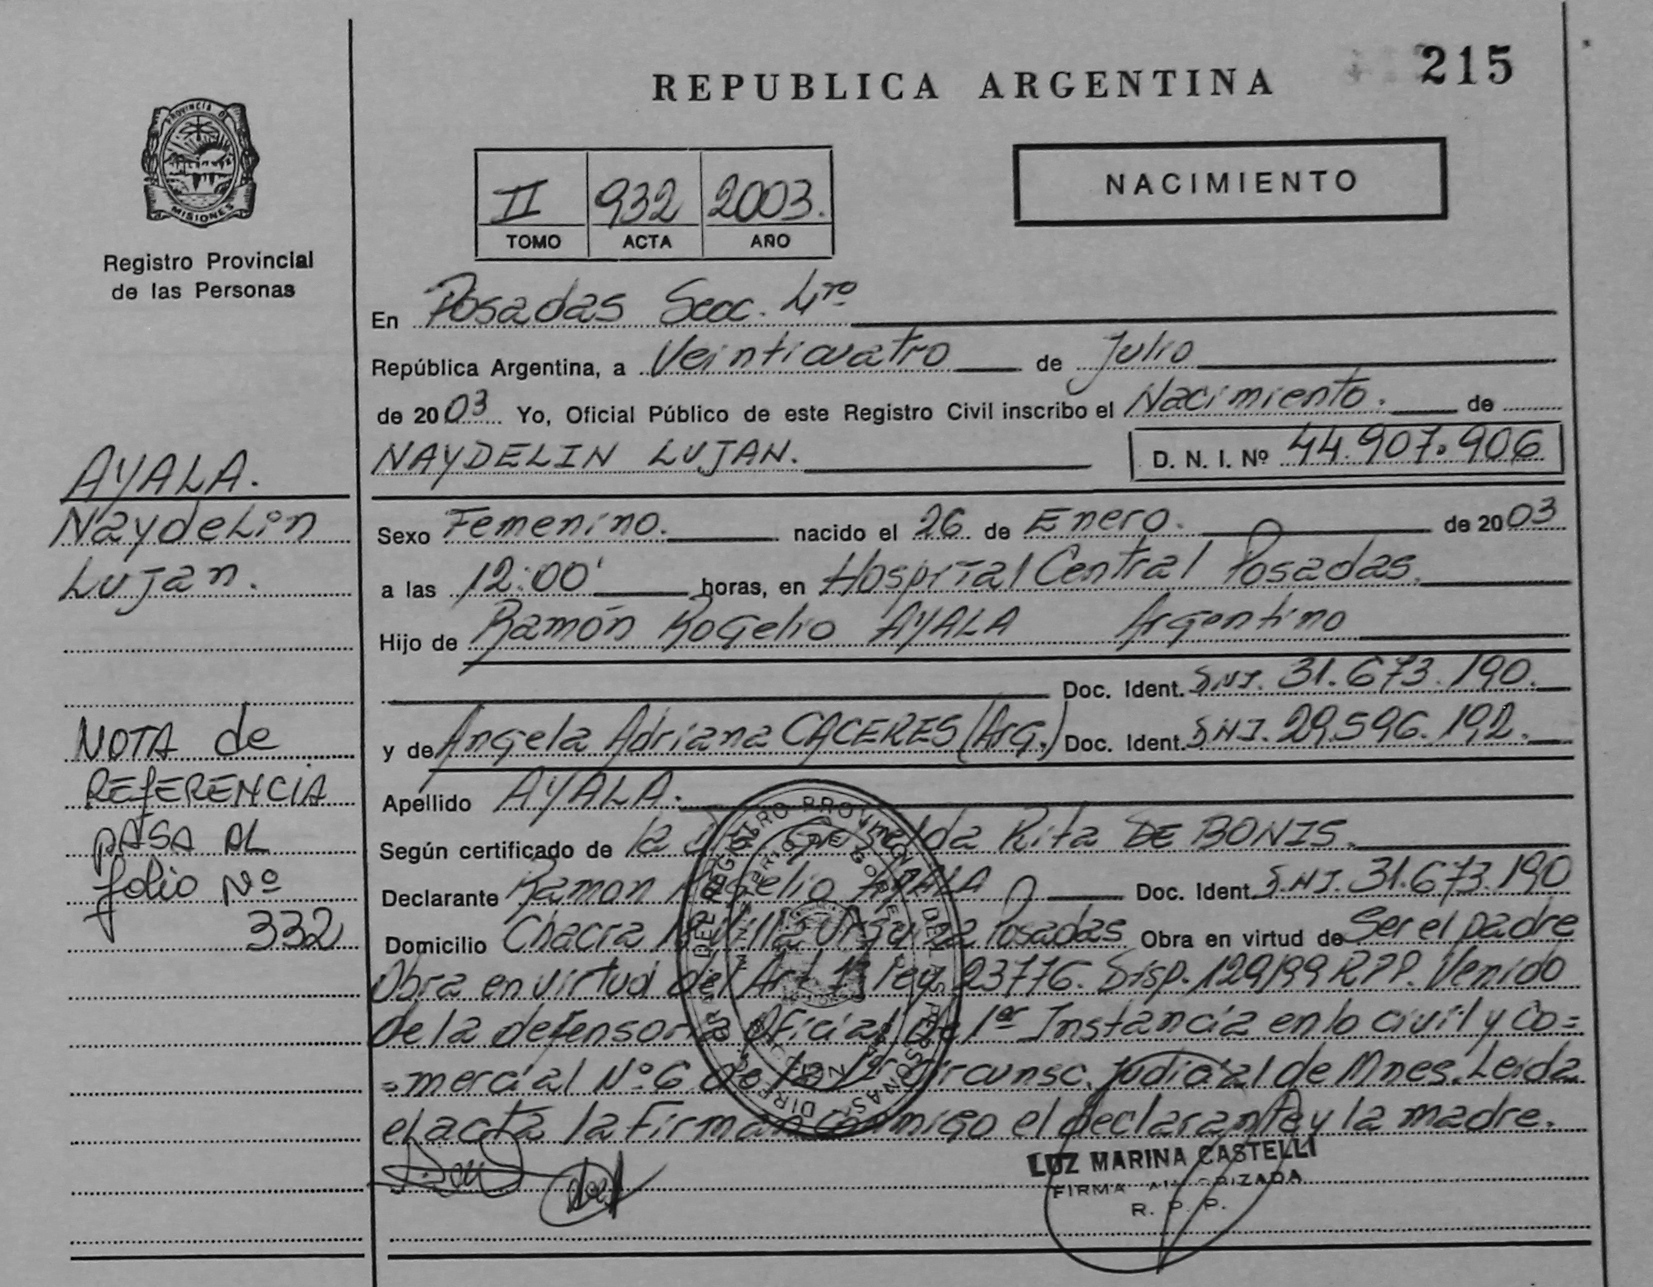 215
REPUBLICA ARGENTINA
NACIMIENTO
PROVINCIA DE
MISIONES
Registro Provincial
de las Personas
II 932 2003.
TOMO ACTA AÑO
En Posadas Secc. 4ro
República Argentina, a Veinticuatro de Julio
de 2003 Yo, Oficial Público de este Registro Civil inscribo el Nacimiento. de
NAYDELIN LUJAN. D. N. I. Nº 44.907.906
AYALA.
Naydelin
Lujan.
Sexo Femenino. nacido el 26 de Enero. de 2003
a las 12:00' horas, en Hospital Central Posadas.
Hijo de Ramón Rogelio AYALA Argentino
Doc. Ident. DNI. 31.673.190.
y de Angela Adriana CACERES (Arg.) Doc. Ident. DNI. 29.596.192.
Apellido AYALA.
Según certificado de la Rita DE BONIS.
Declarante Ramon Rogelio AYALA Doc. Ident. DNI. 31.673.190
Domicilio Chacra Villa Urquiza Posadas Obra en virtud de Ser el padre
Obra en virtud del Art. Ley 23776. Disp. 129/99 RPP. Venido
de la defensoria Oficial de 1er Instancia en lo civil y Co=
=mercial Nº 6 de la Circunsc. Judicial de Mnes. Leida
el acta la Firman conmigo el declarante y la madre.
NOTA de
REFERENCIA
PASA AL
folio Nº
332
LUZ MARINA CASTELLI
FIRMA AUTORIZADA
R. P. P.